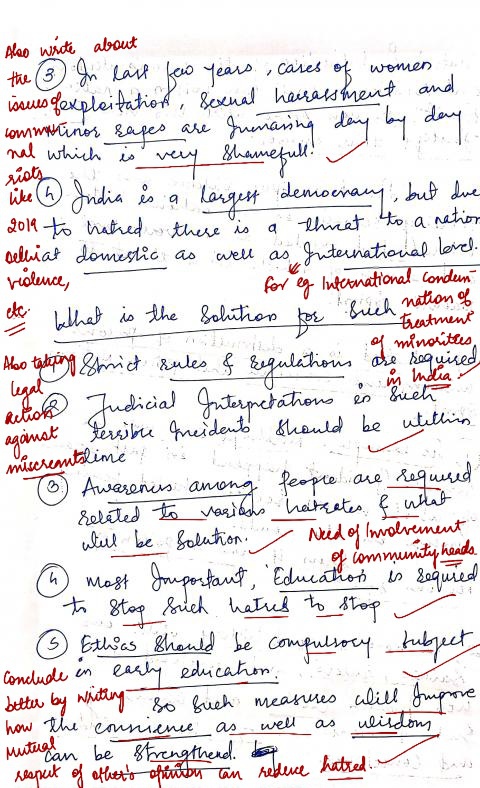 Also write about
the
issues of
commu-
nal
riots
like
2019
Delhi
violence,
etc.
③ In last few years, cases of women
exploitation, Sexual harrassment and
minor rapes are Increasing day by day
which is very Shamefull.
④ India is a largest democracy, but due
to hatred there is a threat to a nation
at domestic as well as International level.
for eg International condem-
nation of
treatment
of minorities
in India.
What is the Solution for Such
① Strict rules & regulations are required
Also taking
legal
action
against
miscreants
② Judicial Interpretations in Such
terrible Incidents should be within
time
③ Awareness among people are required
related to various hatretes & what
will be Solution.
Need of Involvement
of community heads
④ most Important, Education is required
to stop Such hatred to stop
⑤ Ethics should be compulsory Subject
in early education
Conclude
better by writing
how
mutual
respect of other's opinion can reduce hatred.
So Such measures will Improve
the conscience as well as wisdom
can be Strengthend.